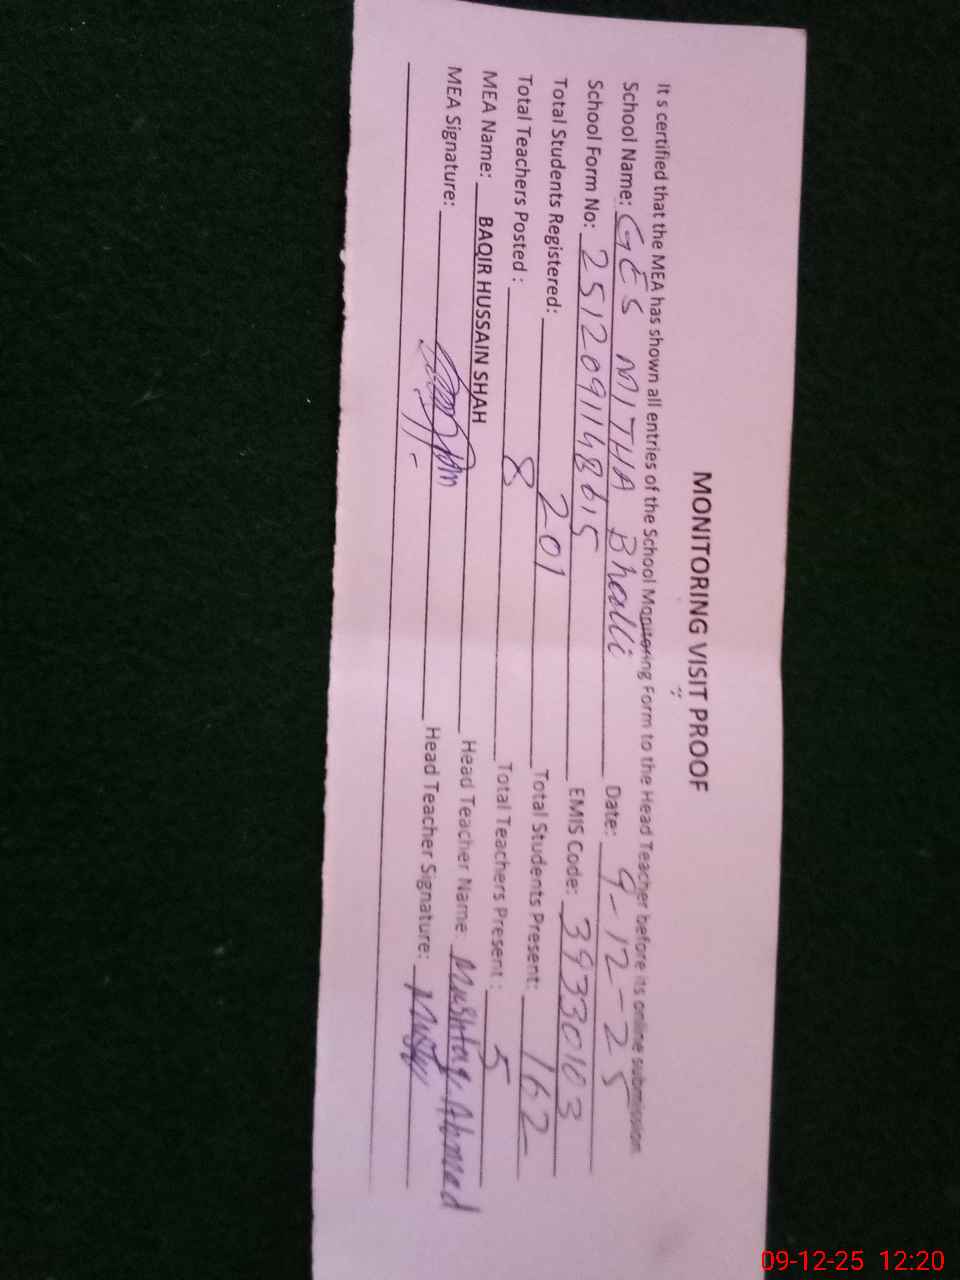 MONITORING VISIT PROOF
It s certified that the MEA has shown all entries of the School Monitoring Form to the Head Teacher before its online submission.
School Name: GES MITHA Bhalli Date: 9-12-25
School Form No: 2512091148615 EMIS Code: 39330103
Total Students Registered: 201 Total Students Present: 162
Total Teachers Posted : 8 Total Teachers Present : 5
MEA Name: BAQIR HUSSAIN SHAH Head Teacher Name: Mushtaq Ahmad
MEA Signature: Head Teacher Signature:
09-12-25 12:20